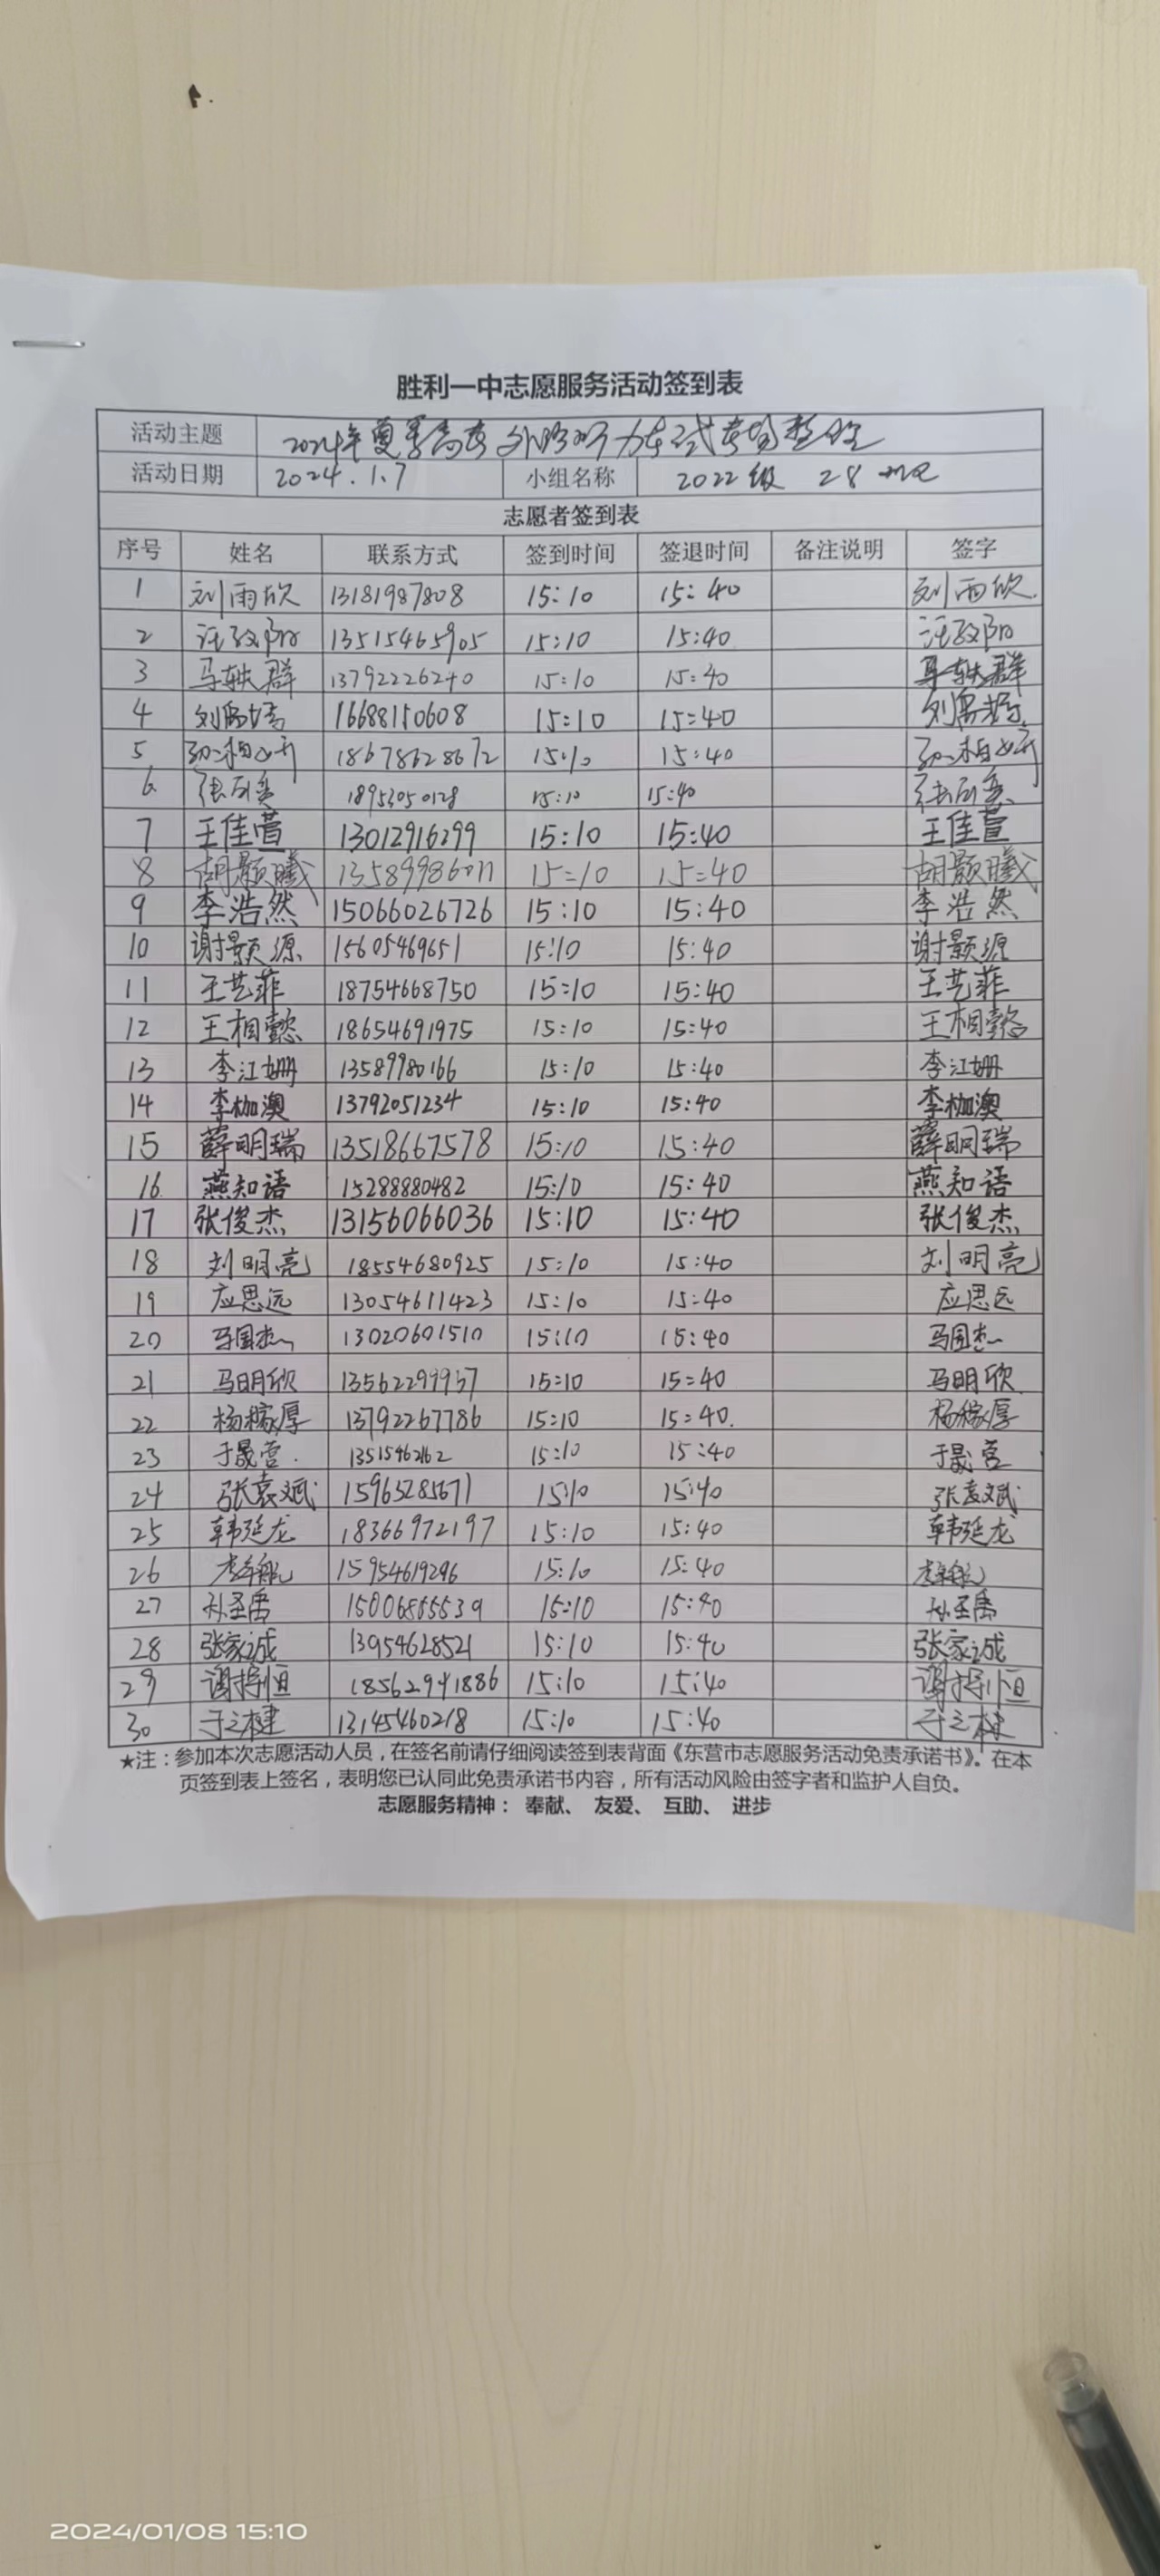 胜利一中志愿服务活动签到表
活动主题 2024年夏季高考外语听力考试考场整理
活动日期 2024.1.7 小组名称 2022级 28
志愿者签到表
序号 姓名 联系方式 签到时间 签退时间 备注说明 签字
1 刘雨欣 13181987808 15:10 15:40 刘雨欣
2 13515465905 15:10 15:40
3 马轶群 13792226240 15:10 15:40 马轶群
4 16688150608 15:10 15:40
5 18678628672 15:10 15:40
6 18953050128 15:10 15:40
7 王佳萱 13012916299 15:10 15:40 王佳萱
8 胡颢曦 13589986011 15:10 15:40 胡颢曦
9 李浩然 15066026726 15:10 15:40 李浩然
10 谢颢源 15605469651 15:10 15:40 谢颢源
11 王艺菲 18754668750 15:10 15:40 王艺菲
12 王相懿 18654691975 15:10 15:40 王相懿
13 李江姗 13589980166 15:10 15:40 李江姗
14 李枷澳 13792051234 15:10 15:40 李枷澳
15 薛明瑞 13518667578 15:10 15:40 薛明瑞
16 燕知语 15288880482 15:10 15:40 燕知语
17 张俊杰 13156066036 15:10 15:40 张俊杰
18 刘明亮 18554680925 15:10 15:40 刘明亮
19 应思远 13054611423 15:10 15:40 应思远
20 马国杰 13020601510 15:10 15:40 马国杰
21 马明欣 13562299937 15:10 15:40 马明欣
22 杨稼厚 13792267786 15:10 15:40. 杨稼厚
23 于晟营 15:10 15:40 于晟营
24 张袁斌 15965285671 15:10 15:40 张袁斌
25 韩延龙 18366972197 15:10 15:40 韩延龙
26 15954619296 15:10 15:40
27 孙圣禹 15006855539 15:10 15:40 孙圣禹
28 张家诚 13954628521 15:10 15:40 张家诚
29 谢梓恒 18562941886 15:10 15:40 谢梓恒
30 于之棣 13145460218 15:10 15:40 于之棣
★注：参加本次志愿活动人员，在签名前请仔细阅读签到表背面《东营市志愿服务活动免责承诺书》。在本
页签到表上签名，表明您已认同此免责承诺书内容，所有活动风险由签字者和监护人自负。
志愿服务精神： 奉献、 友爱、 互助、 进步
2024/01/08 15:10